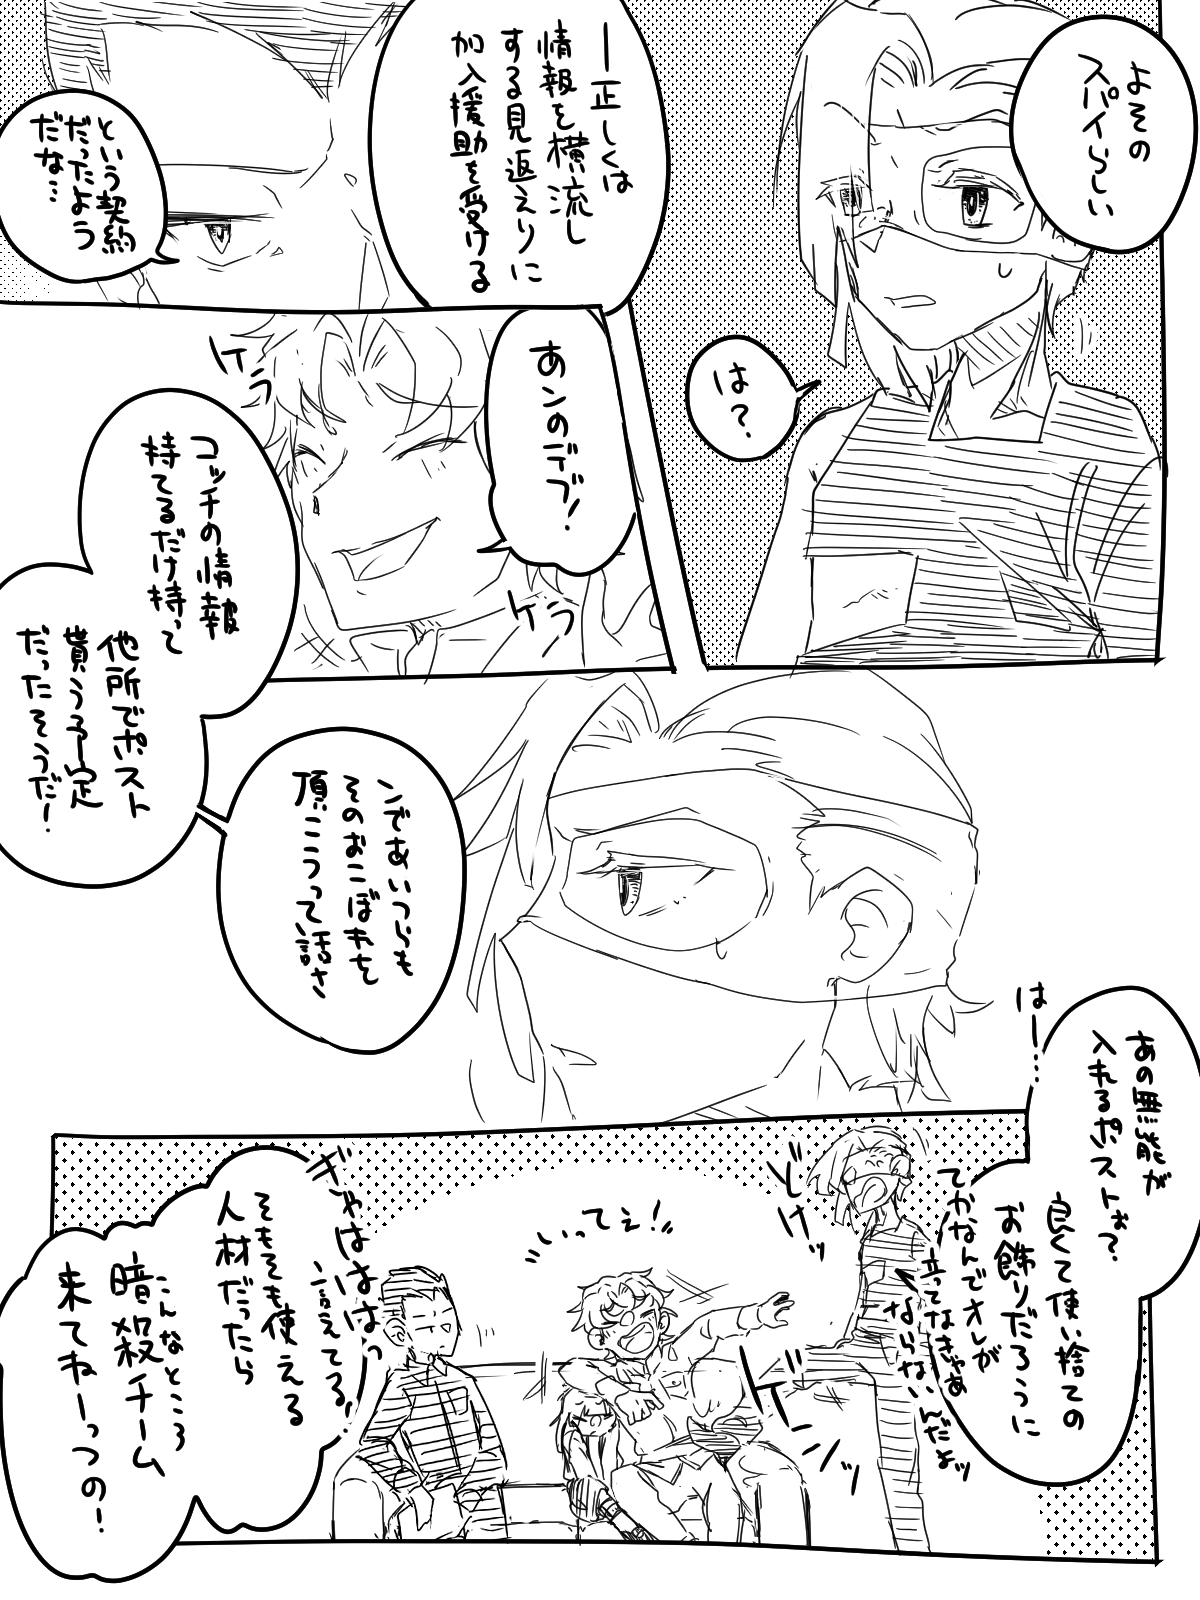 よその
スパイらしい
は?
―正しくは
情報を横流し
する見返えりに
加入援助を受ける
という契約
だったよう
だな…
あンのデブ!
ケラ
ケラ
コッチの情報
持てるだけ持って
他所でポスト
貰うう予定
だったそうだ!
ンであいつらも
そのおこぼれを
頂こうって話さ
はー…
あの無能が
入れるポストぉ?
良くて使い捨ての
お飾りだろうに
てかなんでオレが
立ってなきゃあ
ならないんだよッ
どけッ
ドンッ
いってぇ!
ぎゃははは
言えてる!
そもそも使える
人材だったら
こんなところ
暗殺チーム
来てねーっつの!